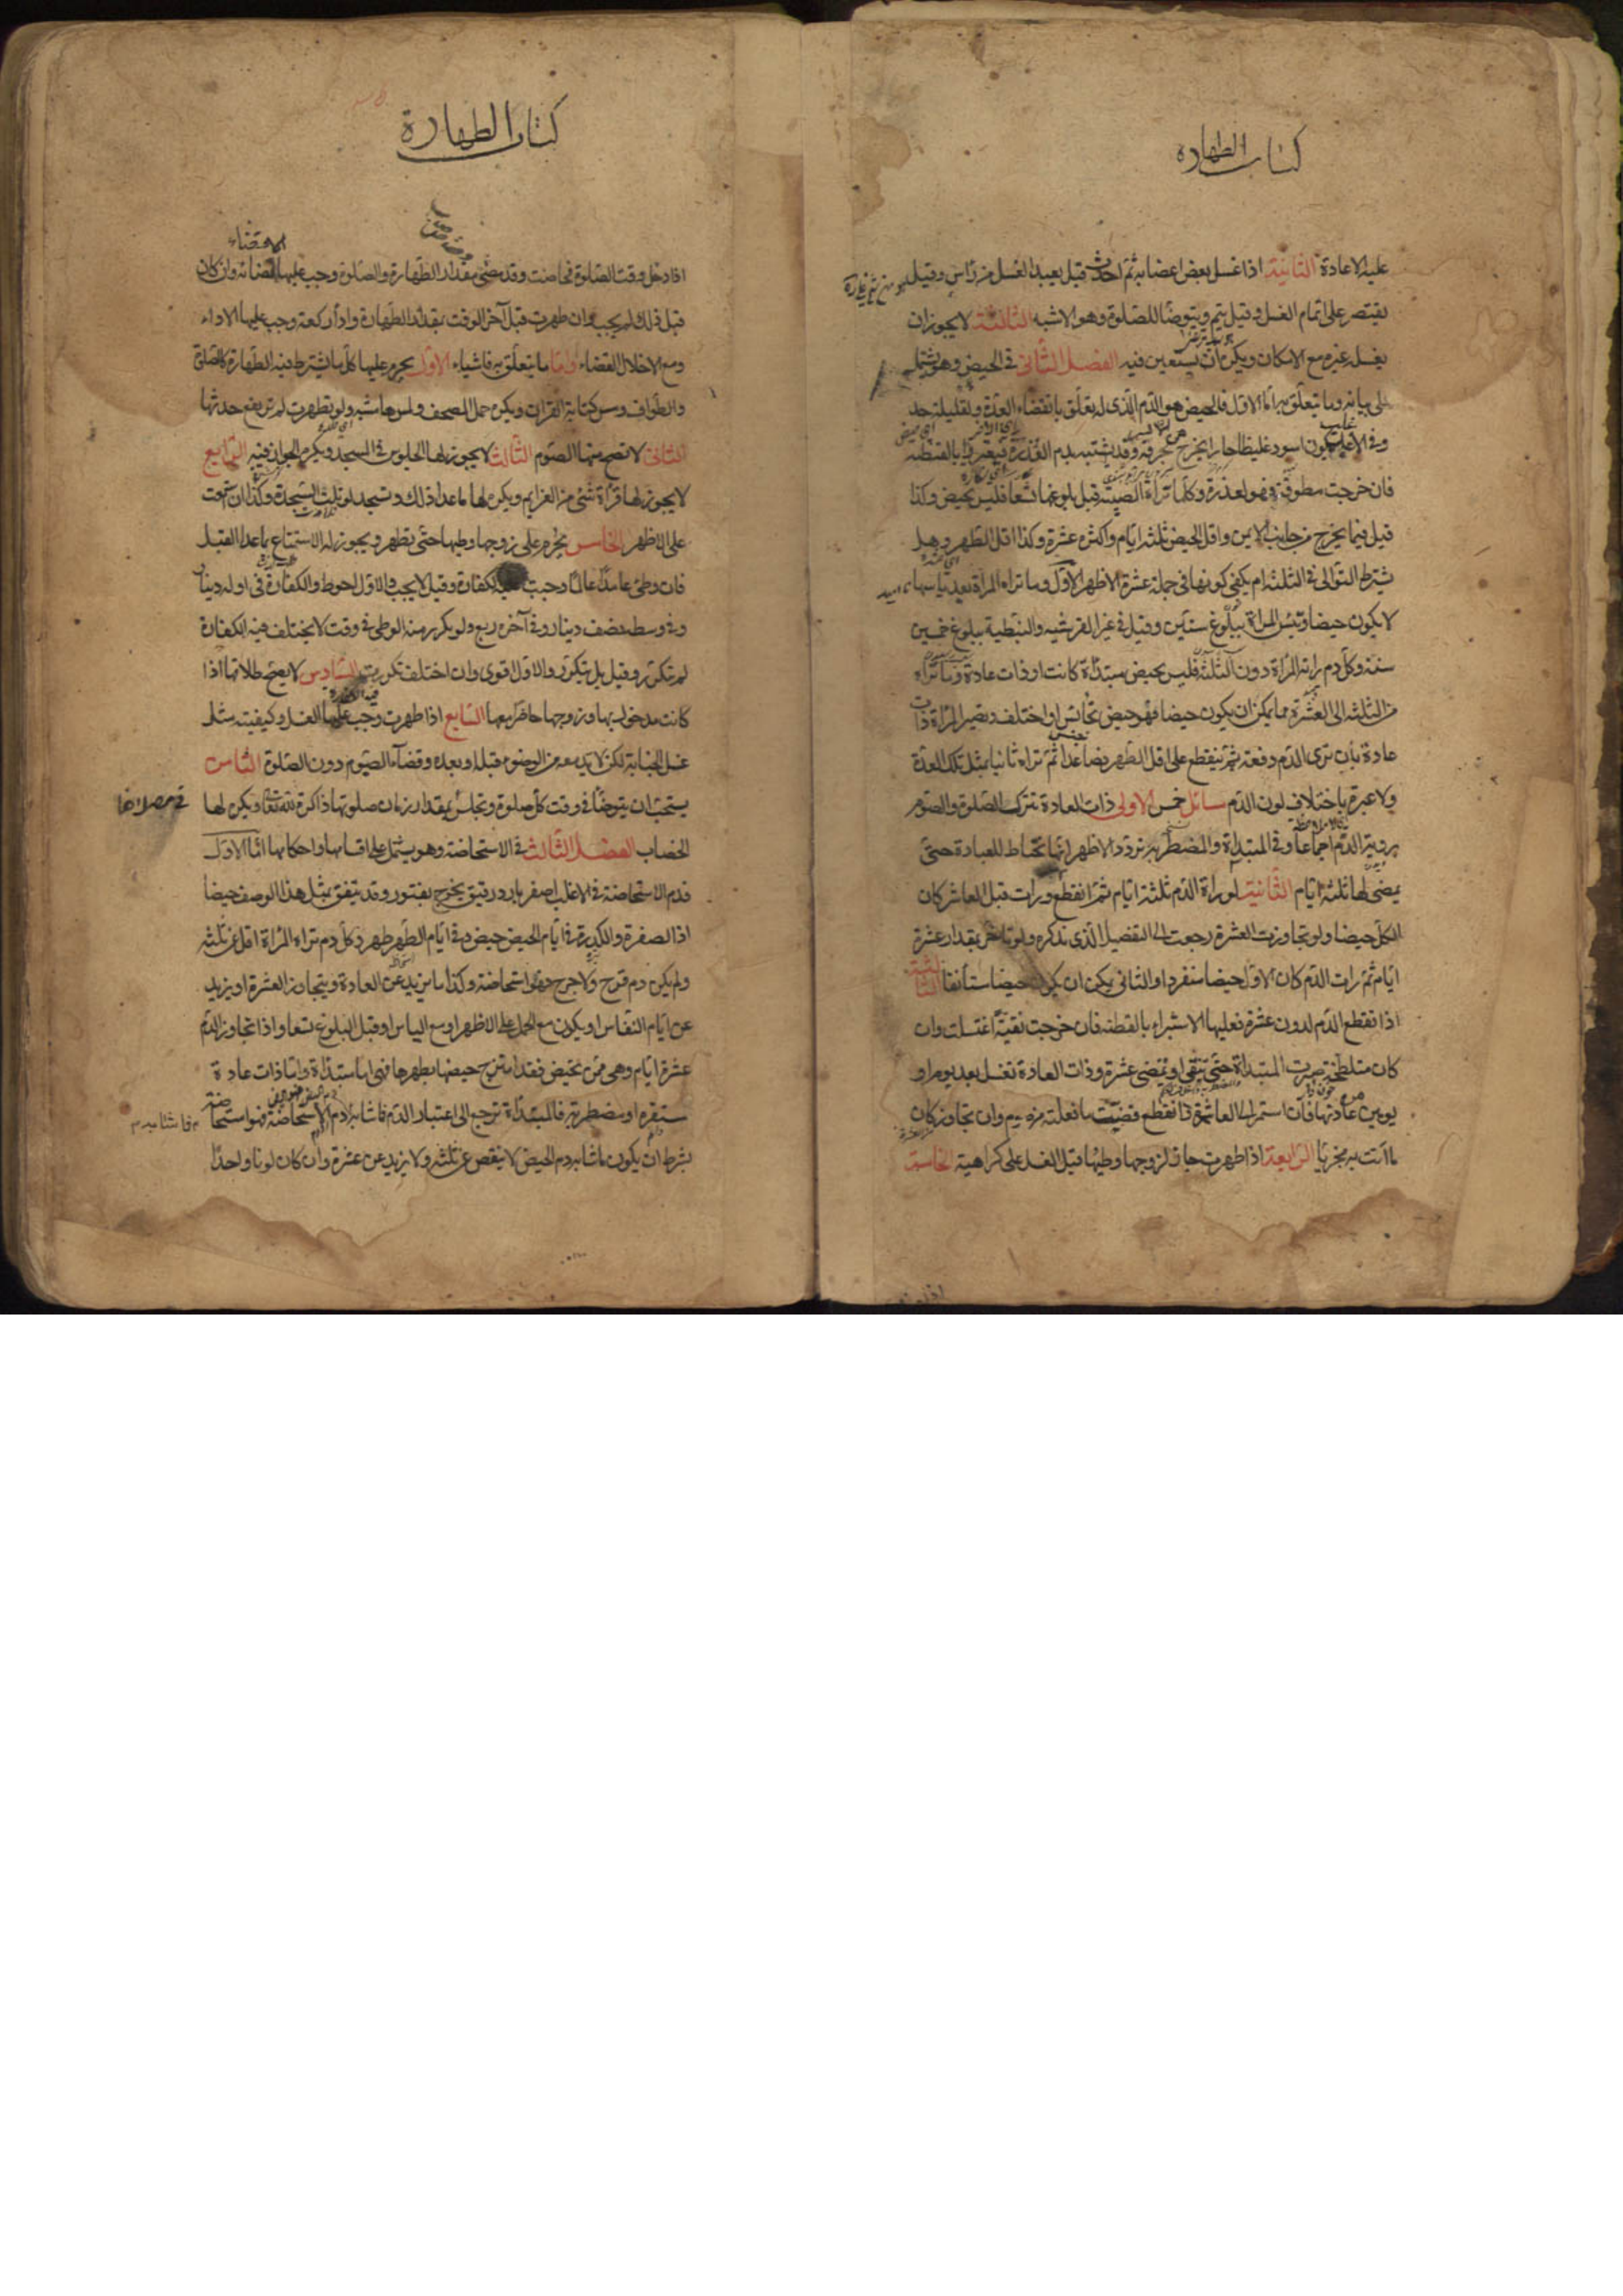 كتاب الطهارة
عليه الاعادة الثانية اذا غسل بعض اعضايه ثم احدث قيل يعيد الغسل من راس وقيل
يقتصر على اتمام الغسل وقيل يتم ويتوضأ للصلوة وهو الاشبه الثالثة لا يجوز ان
يغسله غيره مع الامكان ويكره ان يستعين فيه الفصل الثاني في الحيض وهو يشتمل
على بيانه وما يتعلق به اما الاول فالحيض هو الدم الذي له تعلق بانقضاء العدة ولقليله حد
وفي الاغلب يكون اسود غليظا حارا يخرج بحرقة وقد يشتبه بدم العذرة فيعتبر بالقطنة
فان خرجت مطوقة فهو لعذرة وكلما تراه الصبية قبل بلوغها تسعا فليس بحيض وكذا
قيل فيما يخرج من جانب الايمن واقل الحيض ثلثة ايام واكثره عشرة وكذا اقل الطهر وهل
يشترط التوالى في الثلثة ام يكفي كونها في جملة عشرة الاظهر الاول وما تراه المراة بعد ياسها
لا يكون حيضا وتيئس المراة ببلوغ ستين وقيل في غير القرشيه والنبطية ببلوغ خمسين
سنة وكل دم راته المراة دون الثلثة فليس بحيض مبتدأة كانت او ذات عادة وما تراه
من الثلثة الى العشرة مما يمكن ان يكون حيضا فهو حيض تجانس او اختلف وتصير المراة ذات
عادة بان ترى الدم دفعة ثم ينقطع على اقل الطهر فصاعدا ثم تراه ثانيا بمثل تلك العدة
ولا عبرة باختلاف لون الدم مسائل خمس الاولى ذات العادة تترك الصلوة والصوم
بروية الدم اجماعا وفي المبتدأة والمضطربة تردد الاظهر انها تحتاط للعبادة حتى
يمضى لها ثلثة ايام الثانية لو رأة الدم ثلثة ايام ثم انقطع ورات قبل العاشر كان
الكل حيضا ولو تجاوزت العشرة رجعت الى التفصيل الذى نذكره ولو تأخر بمقدار عشرة
ايام ثم رات الدم كان الاول حيضا منفردا والثانى يمكن ان يكون حيضا مستأنفا الثالثة
اذا انقطع الدم لدون عشرة فعليها الاستبراء بالقطنة فان خرجت نقية اغتسلت وان
كان متلطخة صبرت المبتدأة حتى تنقى او تمضى عشرة وذات العادة تغسل بعد يوم او
يومين من عادتها فان استمر الى العاشر ثم انقطع قضت ما فعلته من صوم وان تجاوز كان
ما اتت به مجزيا الرابعة اذا طهرت جاز لزوجها وطيها قبل الغسل على كراهية الخامسة
كتاب الطهارة
اذا دخل وقت الصلوة فحاضت وقد مضى مقدار الطهارة والصلوة وجب عليها القضاء وان كان
قبل ذلك لم يجب وان طهرت قبل آخر الوقت بمقدار الطهارة واداء ركعة وجب عليها الاداء
ومع الاخلال القضاء واما ما يتعلق به فاشياء الاول يحرم عليها كل ما يشترط فيه الطهارة كالصلوة
والطواف ومس كتابة القران ويكره حمل المصحف ولمس هامشه ولو تطهرت لم ترتفع حدثها
الثانى لا تصح منها الصوم الثالث لا يجوز لها الجلوس في المسجد ويكره الجواز فيه الرابع
لا يجوز لها قرأة شئ من العزايم ويكره لها ما عدا ذلك وتسجد لو تلت السجدة وكذا ان سمعت
على الاظهر الخامس يحرم على زوجها وطيها حتى تطهر ويجوز له الاستمتاع بما عدا القبل
فان وطئ عامدا عالما وجبت عليه الكفارة وقيل لا يجب والاول احوط والكفارة في اوله دينار
وفي وسطه نصف دينار وفي آخره ربع ولو تكرر منه الوطى في وقت لا يختلف فيه الكفارة
لم تتكرر وقيل بل تتكرر والاول اقوى وان اختلف تكررت السادس لا يصح طلاقها اذا
كانت مدخول بها وزوجها حاضر معها السابع اذا طهرت وجب عليها الغسل وكيفيته مثل
غسل الجنابة لكن لا بد معه من الوضوء قبله او بعده وقضاء الصوم دون الصلوة الثامن
يستحب ان يتوضأ في وقت كل صلوة وتجلس بمقدار زمان صلوتها ذاكرة لله تعالى ويكره لها
الخضاب الفصل الثالث في الاستحاضة وهو يشتمل على اقسامها واحكامها اما الاول
فدم الاستحاضة في الاغلب اصفر بارد رقيق يخرج بفتور وقد يتفق بمثل هذا الوصف حيضا
اذا الصفرة والكدرة في ايام الحيض حيض وفي ايام الطهر طهر وكل دم تراه المراة اقل من ثلثة
ولم يكن دم قرح ولا جرح فهو استحاضة وكذا ما يزيد عن العادة ويتجاوز العشرة او يزيد
عن ايام النفاس او يكون مع الحمل على الاظهر او مع الياس او قبل البلوغ تسعا واذا تجاوز الدم
عشرة ايام وهى ممن تحيض فقد امتزج حيضها بطهرها فهى اما مبتدأة واما ذات عادة
مستقره او مضطربة فالمبتدأة ترجع الى اعتبار الدم فما شابه دم الاستحاضة فهو استحاضة
بشرط ان يكون ما شابه دم الحيض لا ينقص عن ثلثة ولا يزيد عن عشرة وان كان لونا واحدا